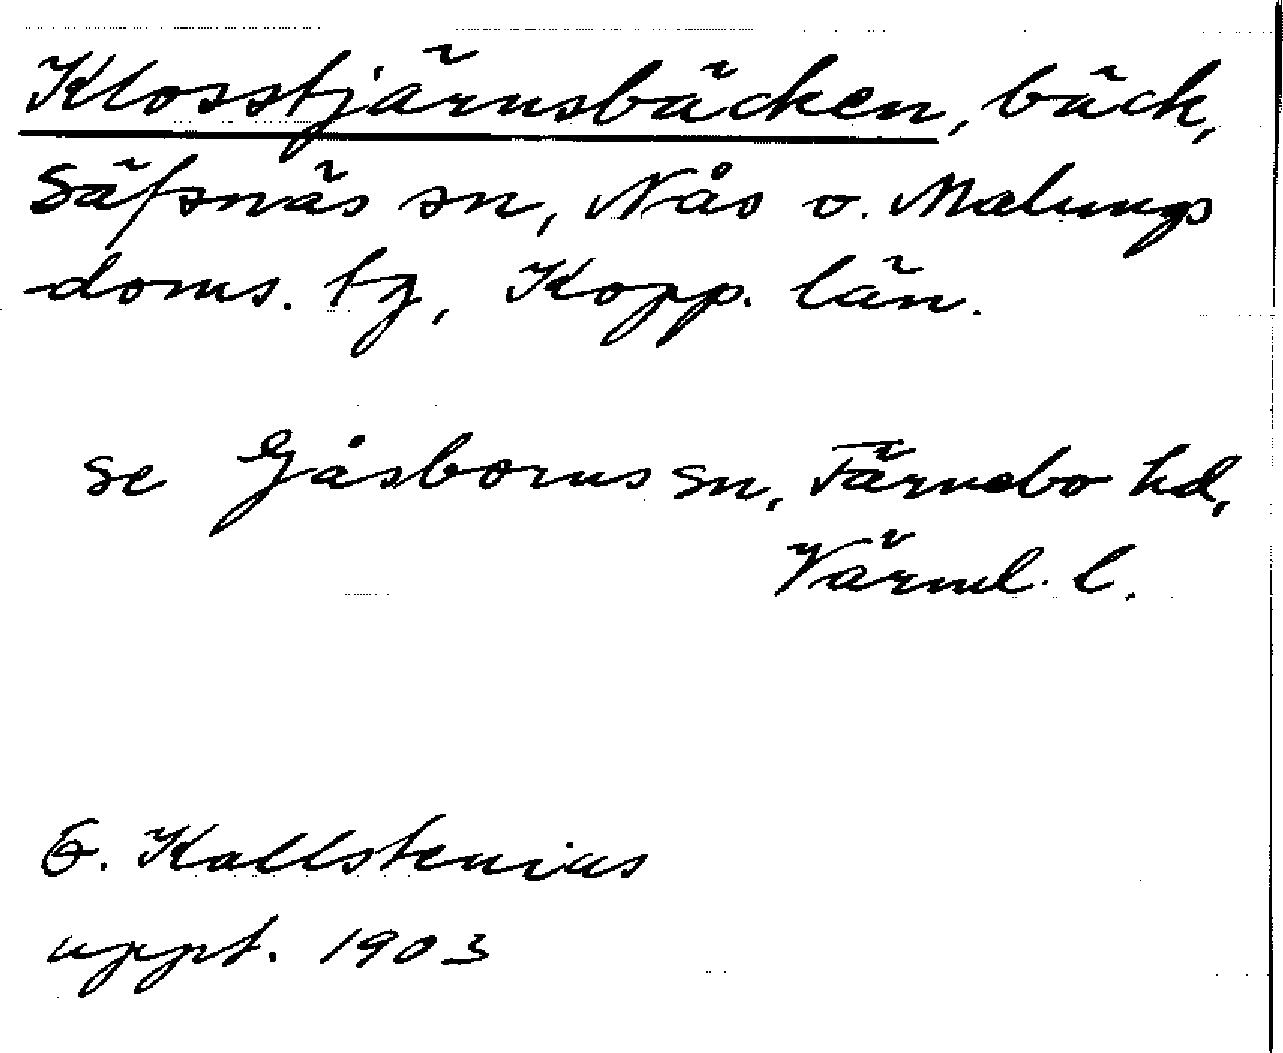 Klosstjärnsbäcken, bäck,
Säfsnäs sn, Nås o. Malungs
doms. tg, Kopp. län.
se Gåsborns sn, Färnebo hd,
Värml. l.
G. Kallstenius
uppt. 1903